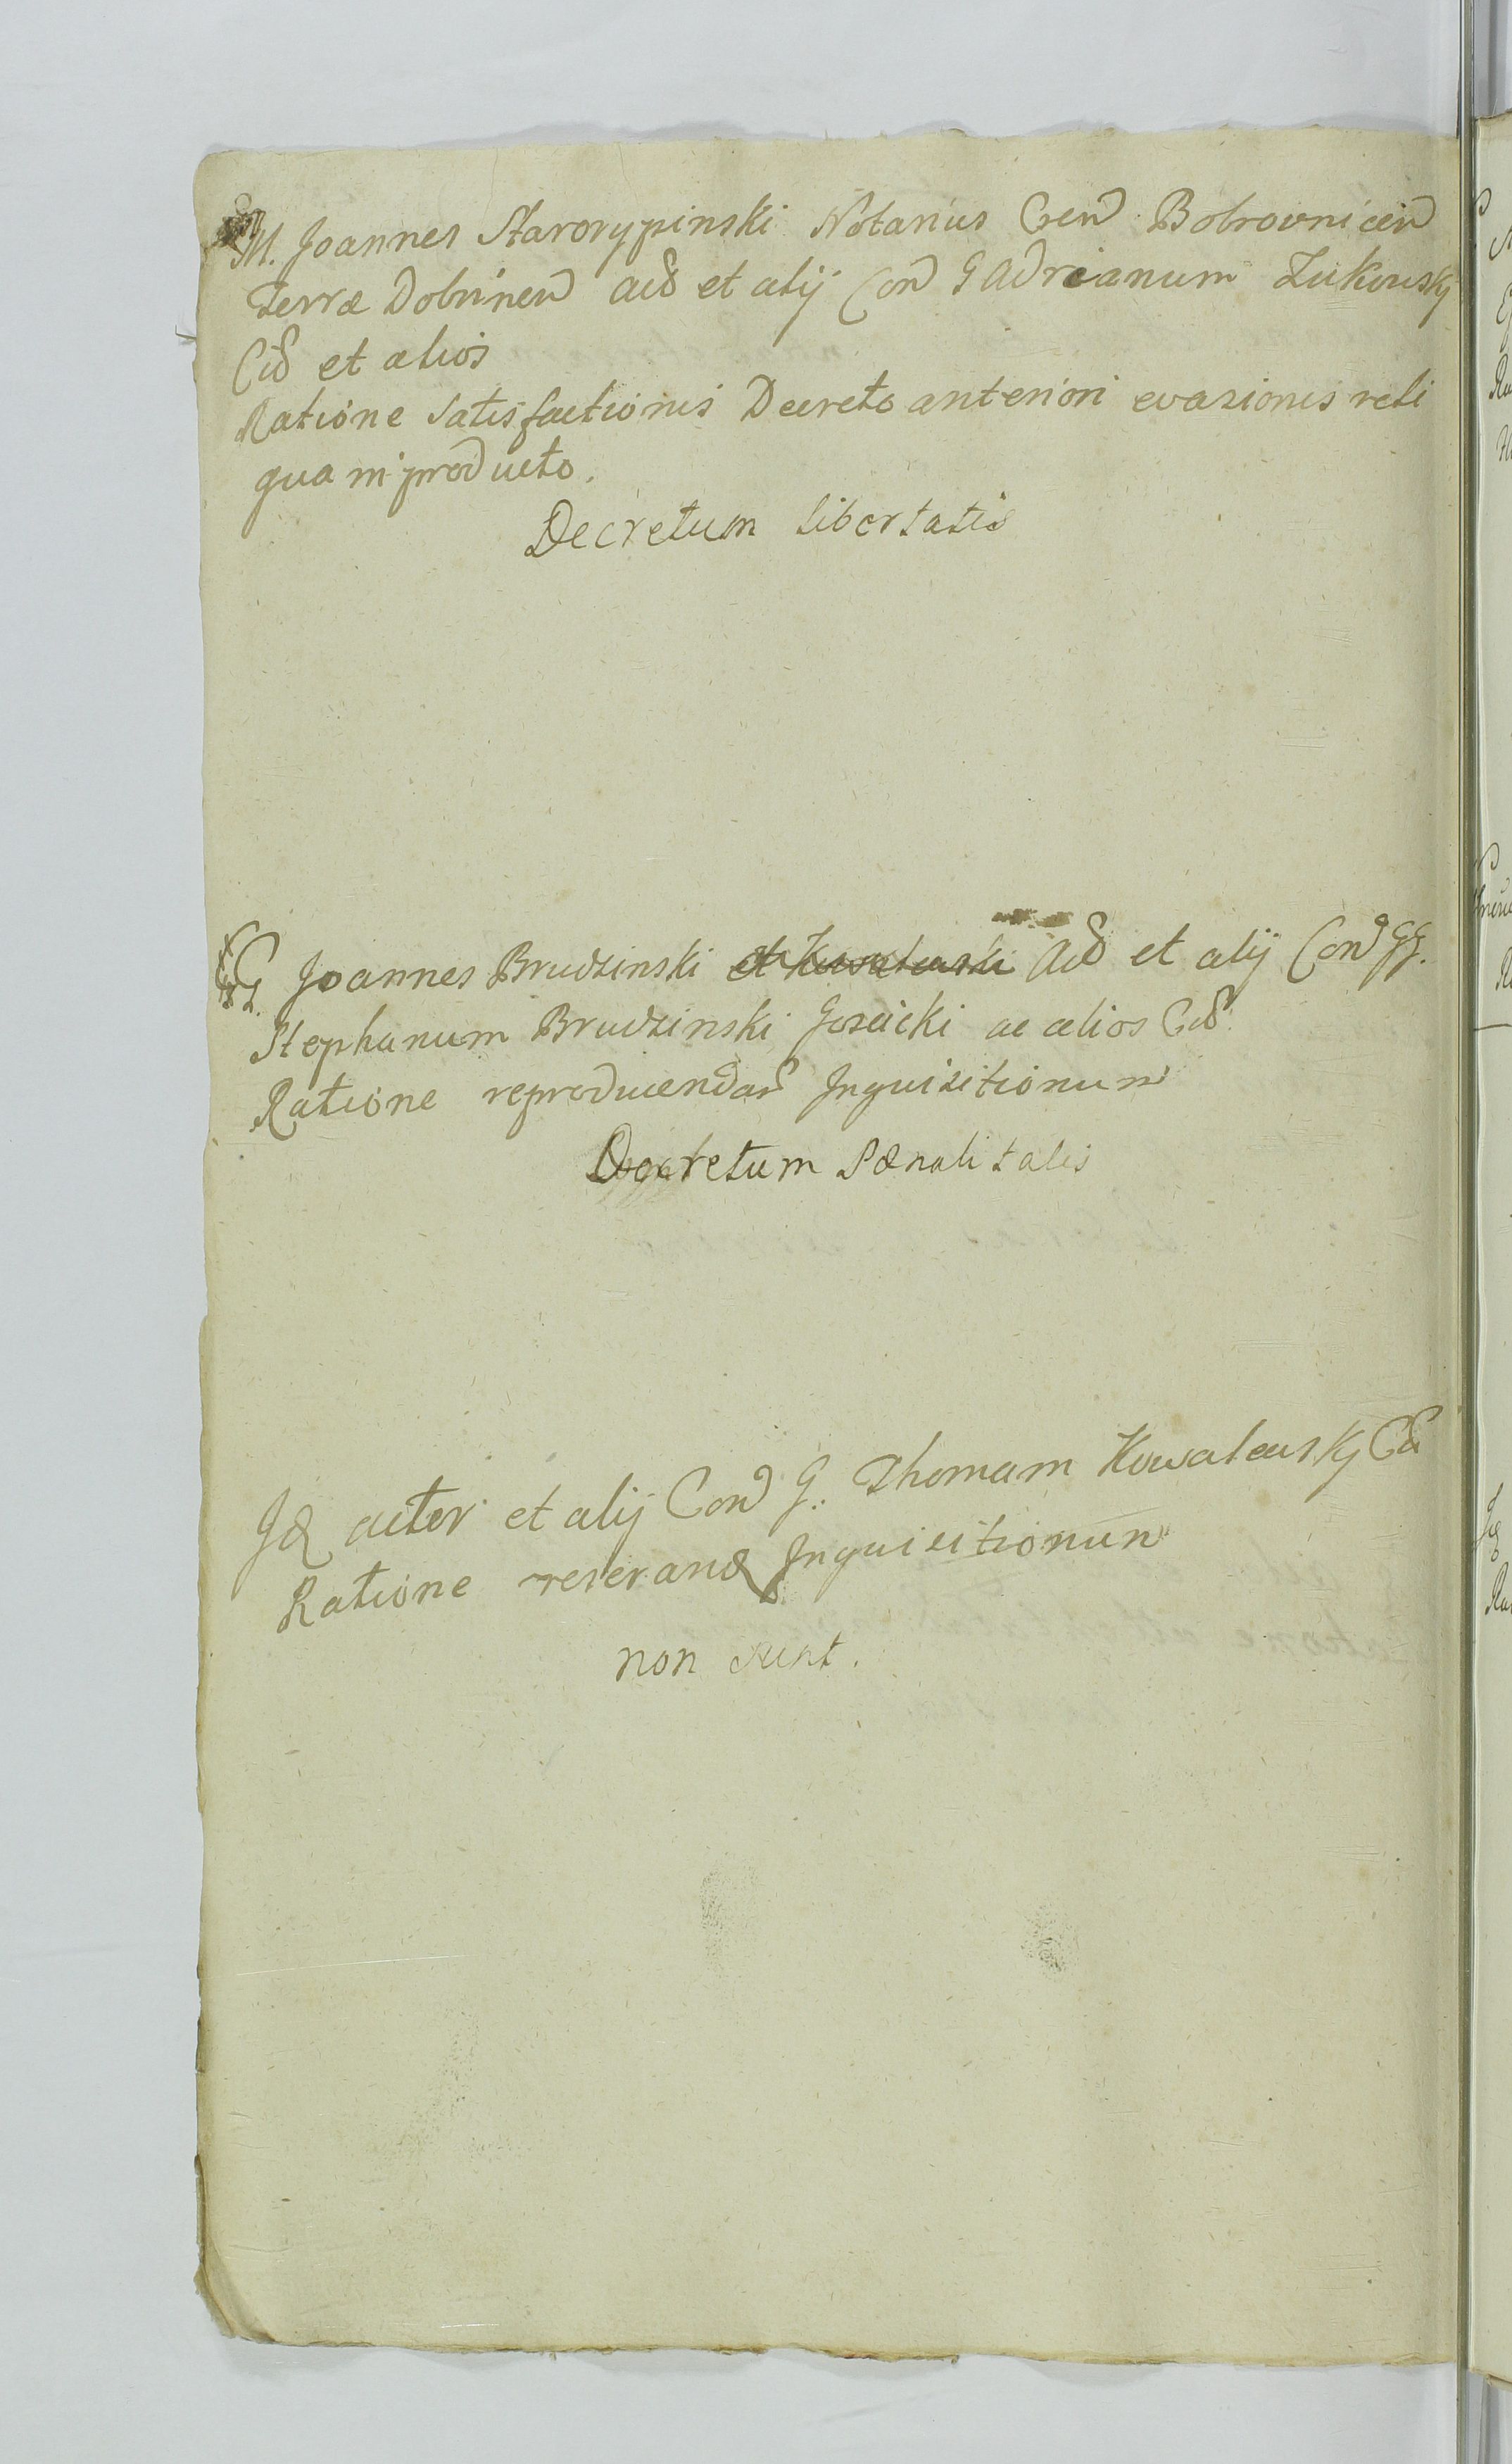 M. Joannes Starorypinski Notarius Cren Bobrovnicen
Terræ Dobrinen Act et alij Con G Adrianum Zukowskj
Cit et alios
Ratione satisfactionis Decreto anteriori evasionis reli
qua in producto.
Decretum libertatis
G. Joannes Brudzinski et Kowalewski Act et alij Con GG.
Stephanum Brudzinski Goscicki ac alios Cit
Ratione reproducendar Inquisitionum
Decretum Pænalitatis
Id actor et alij Con G. Thomam Kowalewskj Cit
Ratione reserand Inquisitionum
non sunt.